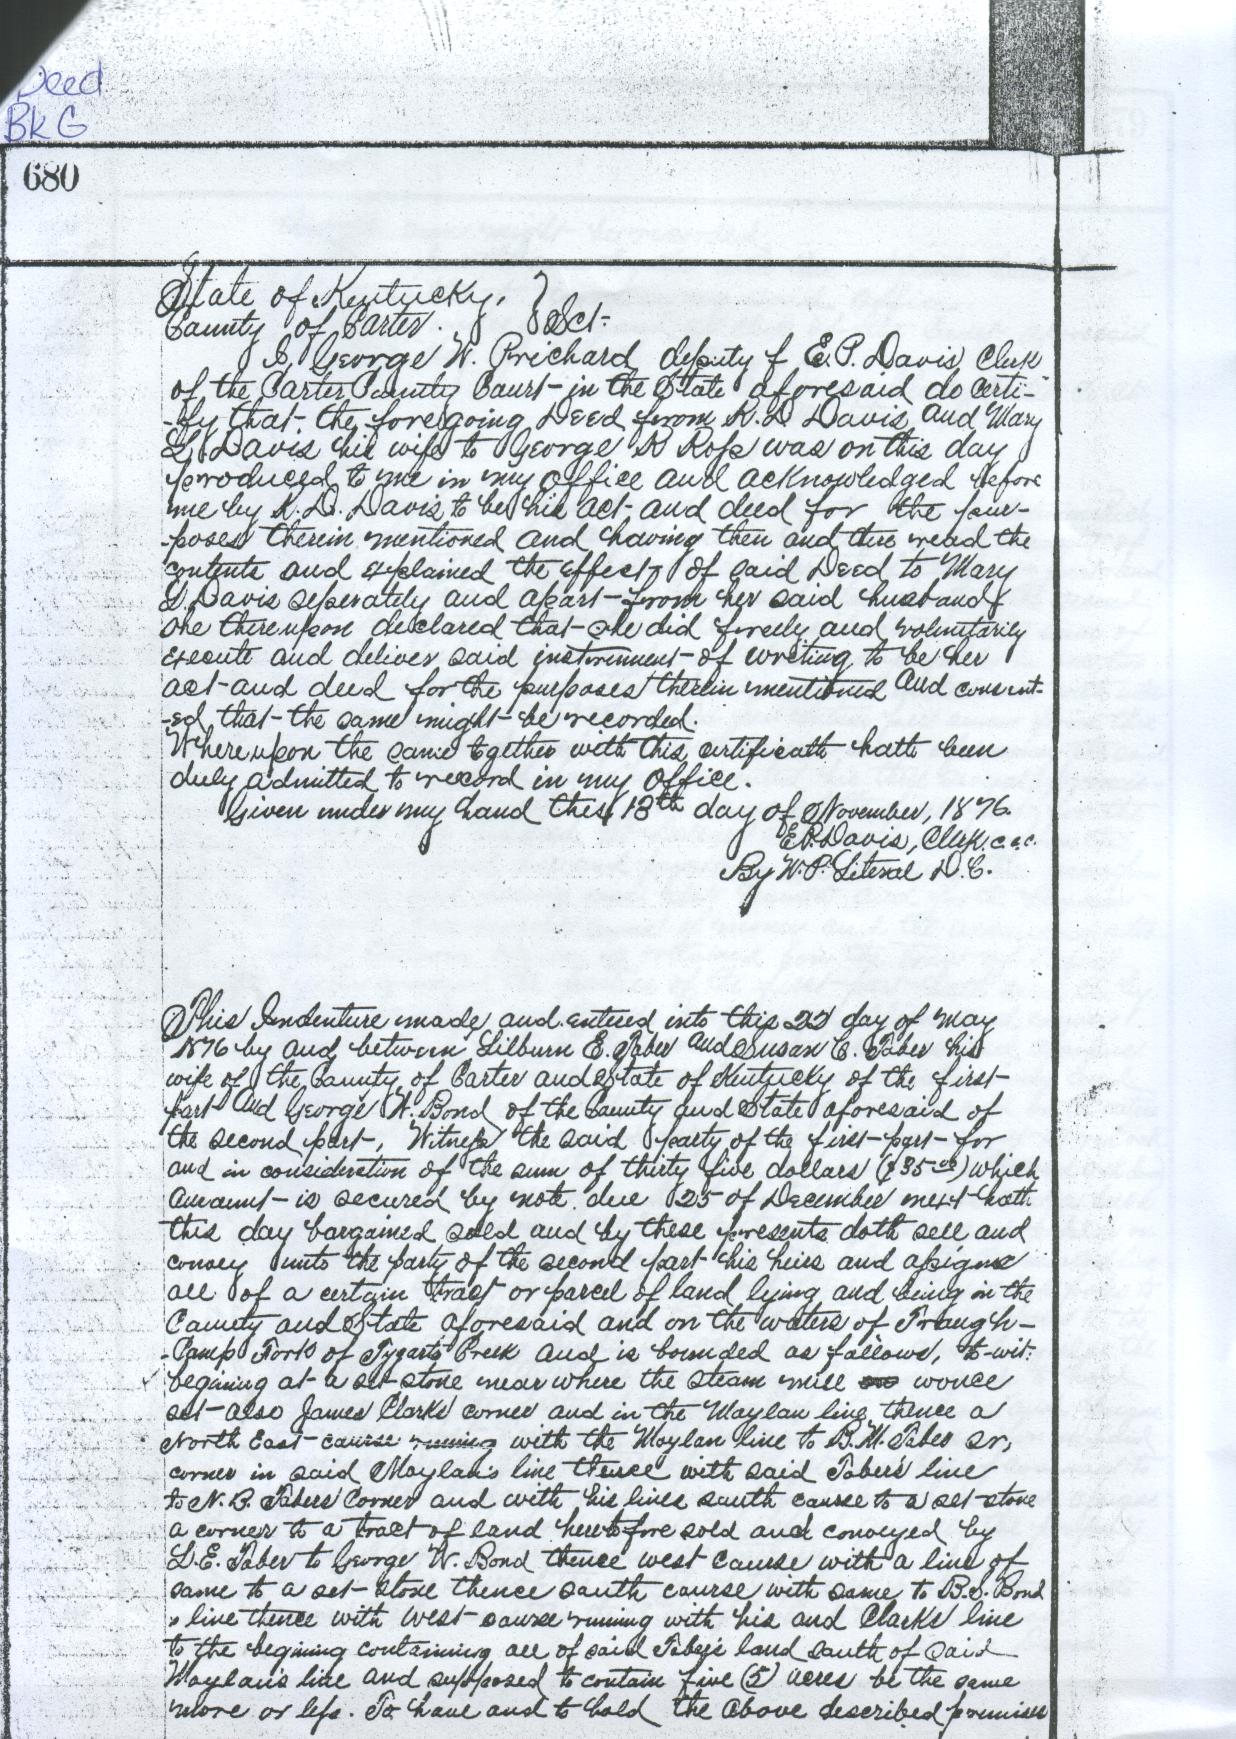 Deed
Bk G
680
State of Kentucky, }
County of Carter. } Sct.
I, George W. Prichard deputy f E. P. Davis, Clerk
of the Carter County Court in the State aforesaid do certi-
-fy that the foregoing Deed from K. D Davis, and Mary
Davis his wife to George R Ross was on this day
produced to me in my office and acknowledged before
me by K. D. Davis to be his act and deed for the pur-
-poses therein mentioned and having then and there read the
contents and explained the effect of said Deed to Mary
Davis seperately and apart from her said husband
she thereupon declared that she did freely and voluntarily
execute and deliver said instrument of writing to be her
act and deed for the purposes therein mentioned and consent-
-ed that the same might be recorded.
Whereupon the same together with this certificate hath been
duly admitted to record in my office.
Given under my hand this 13th day of November, 1876.
E P. Davis, Clerk c.c.c.
By W. P. Literal D. C.
This Indenture made and entered into this 22 day of May
1876 by and between Lilburn E. Taber and Susan C. Taber his
wife of the County of Carter and State of Kentucky of the first
part and George W. Bond of the County and State aforesaid of
the second part, Witness the said party of the first part for
and in consideration of the sum of thirty five dollars ($35.00) which
amount is secured by note due 25 of December next hath
this day bargained sold and by these presents doth sell and
convey unto the party of the second part his heirs and assigns
all of a certain tract or parcel of land lying and being in the
County and State aforesaid and on the waters of Traugh-
-Camp Fork of Tygarts Creek and is bounded as follows, to-wit:
begining at a set stone near where the steam mill wonce
set also James Clarks corner and in the Maylan line thence a
North East course running with the Maylan line to B. M. Taber Sr,
corner in said Maylan's line thence with said Tabers line
to N. B. Tabers Corner and with his lines south course to a set stone
a corner to a tract of land heretofore sold and conveyed by
L. E. Taber to George W. Bond thence west course with a line of
same to a set stone thence south course with same to B. S. Bond
s line thence with west course running with his and Clarks line
to the begining containing all of said Taber's land south of said
Maylan's line and supposed to contain five (5) acres be the same
more or less. To have and to hold the above described premises